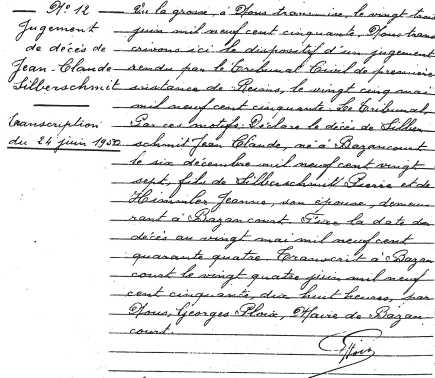 N° 12
Jugement
de décès de
Jean-Claude
Silberschmit
Transcription
du 24 juin 1950
En la grosse, à Nous transmise, le vingt trois
juin mil neuf cent cinquante, Nous trans
crivons ici le dispositif d'un jugement
rendu par le Tribunal Civil de première
instance de Reims, le vingt cinq mai
mil neuf cent cinquante. Le Tribunal,
Par ces motifs: Déclare le décès de Silber
schmit Jean Claude, né à Bazancourt
le six décembre mil neuf cent vingt
sept, fils de Silberschmitt Pierre et de
Himmler Jeanne, son épouse, demeu
rant à Bazancourt. Fixe la date du
décès au vingt mai mil neuf cent
quarante quatre. Transcrit à Bazan
court le vingt quatre juin mil neuf
cent cinquante, dix huit heures, par
Nous, Georges Ploix, Maire de Bazan
court.
Ploix